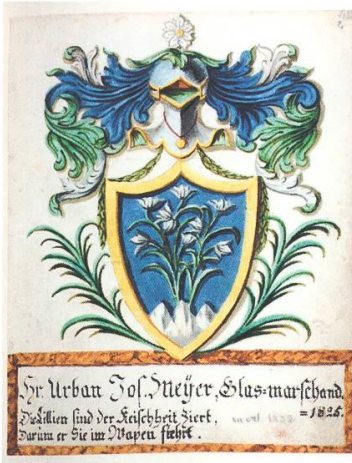 Hr. Urban Jos. Meÿer, Glas=marschand.
Die Lillien sind der Keischheit Ziert, = 1825.
Darum er Sie im Wapen fiehrt.